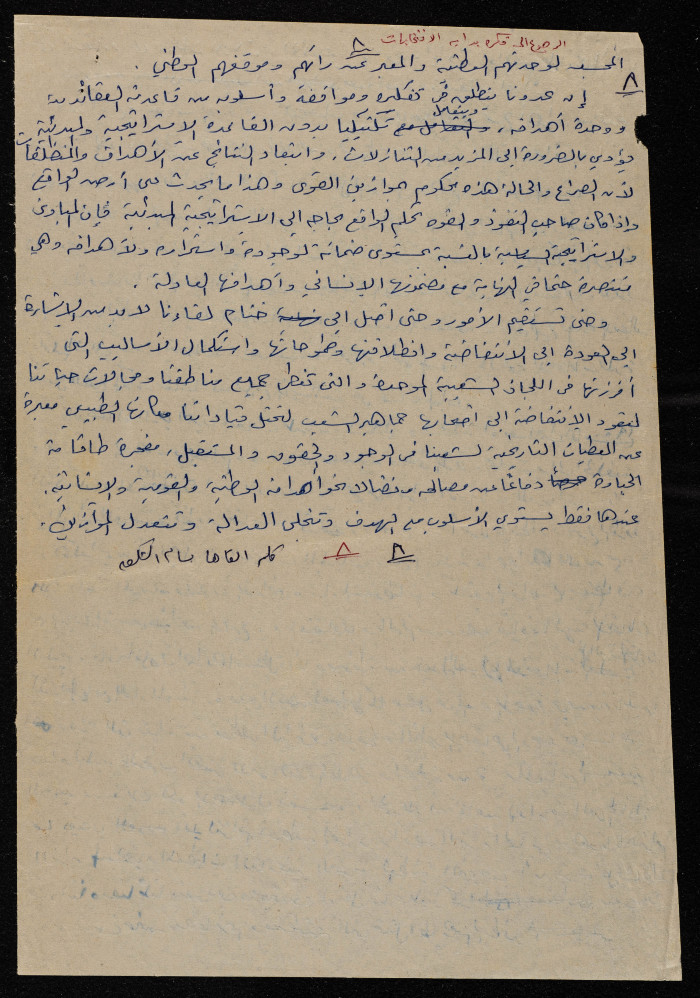 الرجوع الى فكرة بداية الانتخابات
٨
المجسد لوحدتهم الوطنية والمعبر عن رأيهم وموقفهم الوطني .
٨
إن عدونا ينطلق في تفكيره ومواقفه وأسلوبه من قاعدته العقائدية
ووحدة أهدافه ، ويتعامل معه تكتيكيا بدون القاعدة الاستراتيجية والمبدئية
يؤدي بالضرورة الى المزيد من التنازلات ، وابتعاد النتائج عن الأهداف والمنطلقات
لأن الصراع والحالة هذه محكوم بموازين القوى وهذا ما يحدث على أرض الواقع
واذا كان صاحب النفوذ والقوة تحكم الواقع بحاجه الى الاستراتيجية المبدئية فإن المبادئ
والاستراتيجية بالنسبة ضمانة لوجوده واستمراره ولأهدافه وهي
منتصرة حتما في النهاية مع مضمونها الإنساني وأهدافها العادلة .
وحتى تستقيم الأمور وحتى أصل الى نهاية ختام لقاءنا لا بد من الإشارة
الى العودة الى الانتفاضة وانطلاقتها وطموحاتها واستكمال الأساليب التي
أفرزتها في اللجان الشعبية الموحدة والتي تغطي جميع مناطقنا ومجالات حياتنا
لتعود الانتفاضة الى أصحابها جماهير الشعب لتحتل قياداتنا مكانها الطبيعي معبرة
عن المعطيات التاريخية لشعبنا في الوجود والحقوق والمستقبل ، مفجرة طاقاته
الجبارة دفاعا عن مصالحه ونضالا نحو أهدافه الوطنية والقومية والإنسانية .
عندها فقط يستوي الأسلوب مع الهدف وتتجلى العدالة وتتعدل الموازين .
٨ ٨ كلمة القاها بسام الشكعه